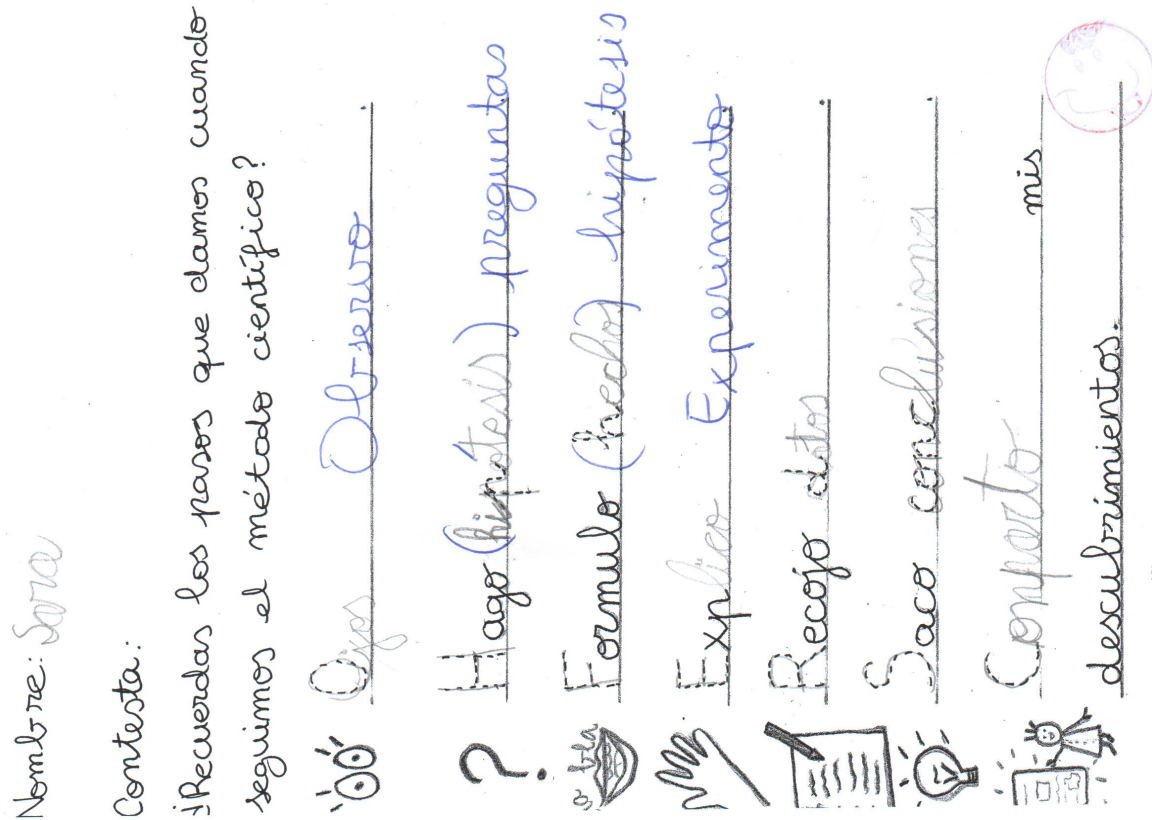 Nombre: Sara
Contesta:
¿Recuerdas los pasos que damos cuando
seguimos el método científico?
Ojos Observo.
Hago (hipótesis) preguntas
Formulo (hechos) hipótesis
Explico Experimento.
Recojo datos.
Saco conclusiones.
Comparto mis
descubrimientos.
bla bla